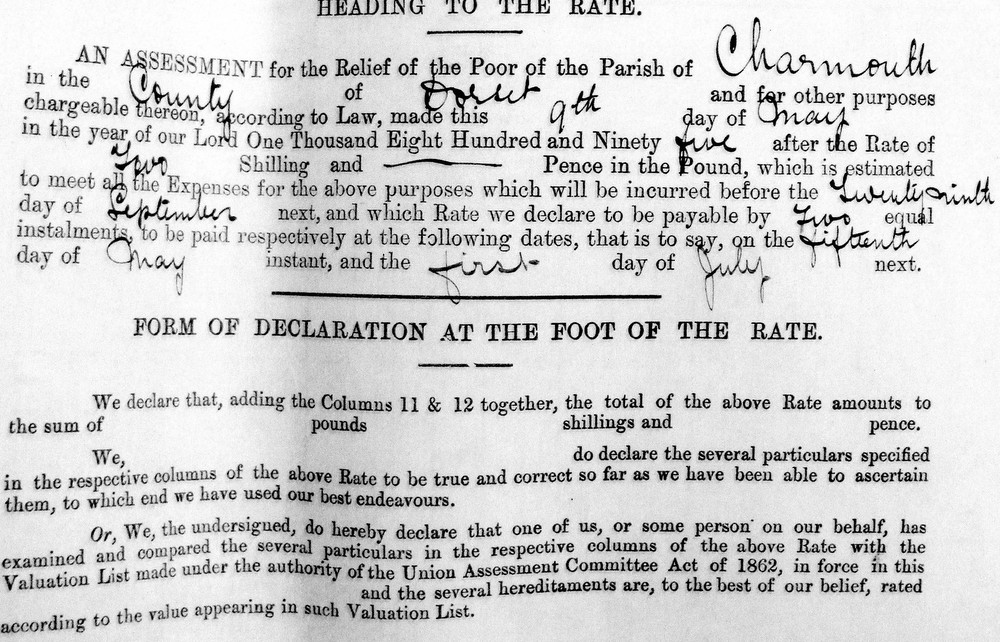 HEADING TO THE RATE.
AN ASSESSMENT for the Relief of the Poor of the Parish of Charmouth
in the County of Dorset and for other purposes
chargeable thereon, according to Law, made this 9th day of May
in the year of our Lord One Thousand Eight Hundred and Ninety five after the Rate of
Two Shilling and — Pence in the Pound, which is estimated
to meet all the Expenses for the above purposes which will be incurred before the Twenty ninth
day of September next, and which Rate we declare to be payable by Two equal
instalments, to be paid respectively at the following dates, that is to say, on the fifteenth
day of May instant, and the first day of July next.
FORM OF DECLARATION AT THE FOOT OF THE RATE.
We declare that, adding the Columns 11 & 12 together, the total of the above Rate amounts to
the sum of pounds shillings and pence.
We, do declare the several particulars specified
in the respective columns of the above Rate to be true and correct so far as we have been able to ascertain
them, to which end we have used our best endeavours.
Or, We, the undersigned, do hereby declare that one of us, or some person on our behalf, has
examined and compared the several particulars in the respective columns of the above Rate with the
Valuation List made under the authority of the Union Assessment Committee Act of 1862, in force in this
and the several hereditaments are, to the best of our belief, rated
according to the value appearing in such Valuation List.